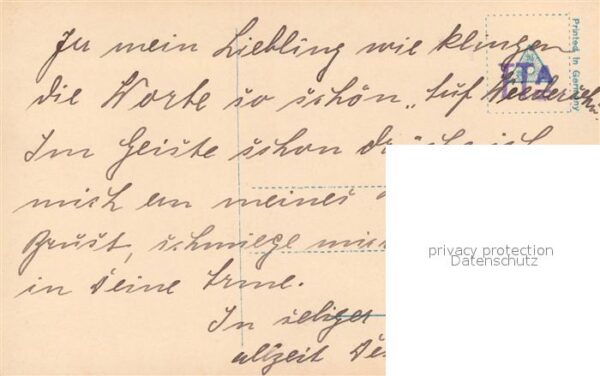 Ja mein Liebling wie klingen
die Worte so schön „Auf Wiederseh'n
Im Geiste schon drücke ich
mich an meines
Brust, schmiege mich
in Deine Arme.
In seliger
allzeit
Printed in Germany
privacy protection
Datenschutz